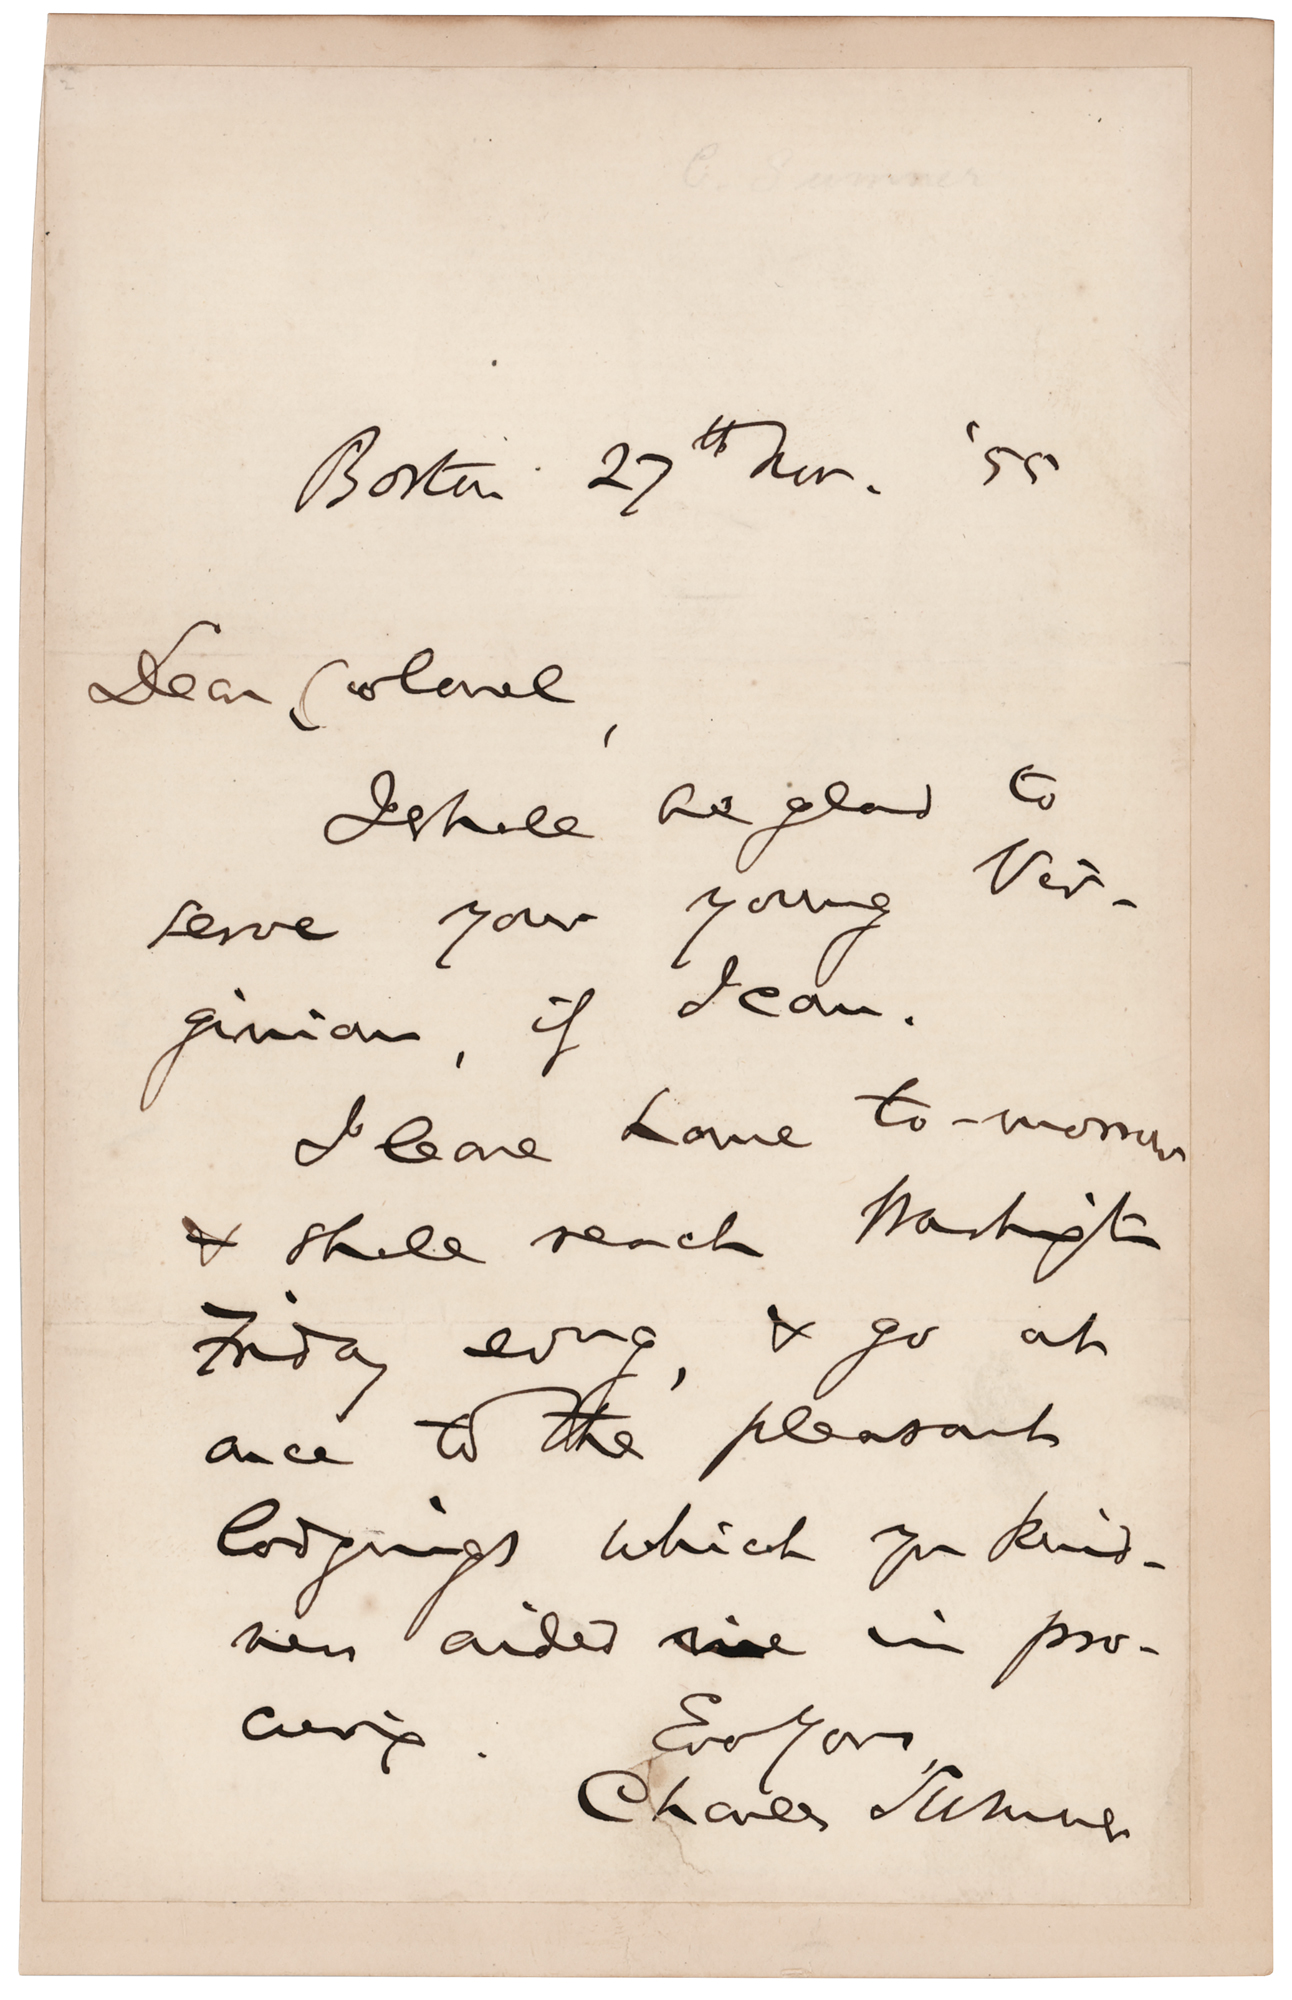 C. Sumner
Boston 27th Nov. '55
Dear Colonel,
I shall be glad to
serve your young Vir-
ginian, if I can.
I leave home to-morrow
& shall reach Washington
Friday evng, & go at
once to the pleasant
lodgings which yr kind-
ness aided me in pro-
curing. Ever Yours,
Charles Sumner